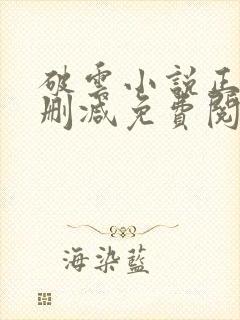 破雲小説正
刪減免費閱
海染藍